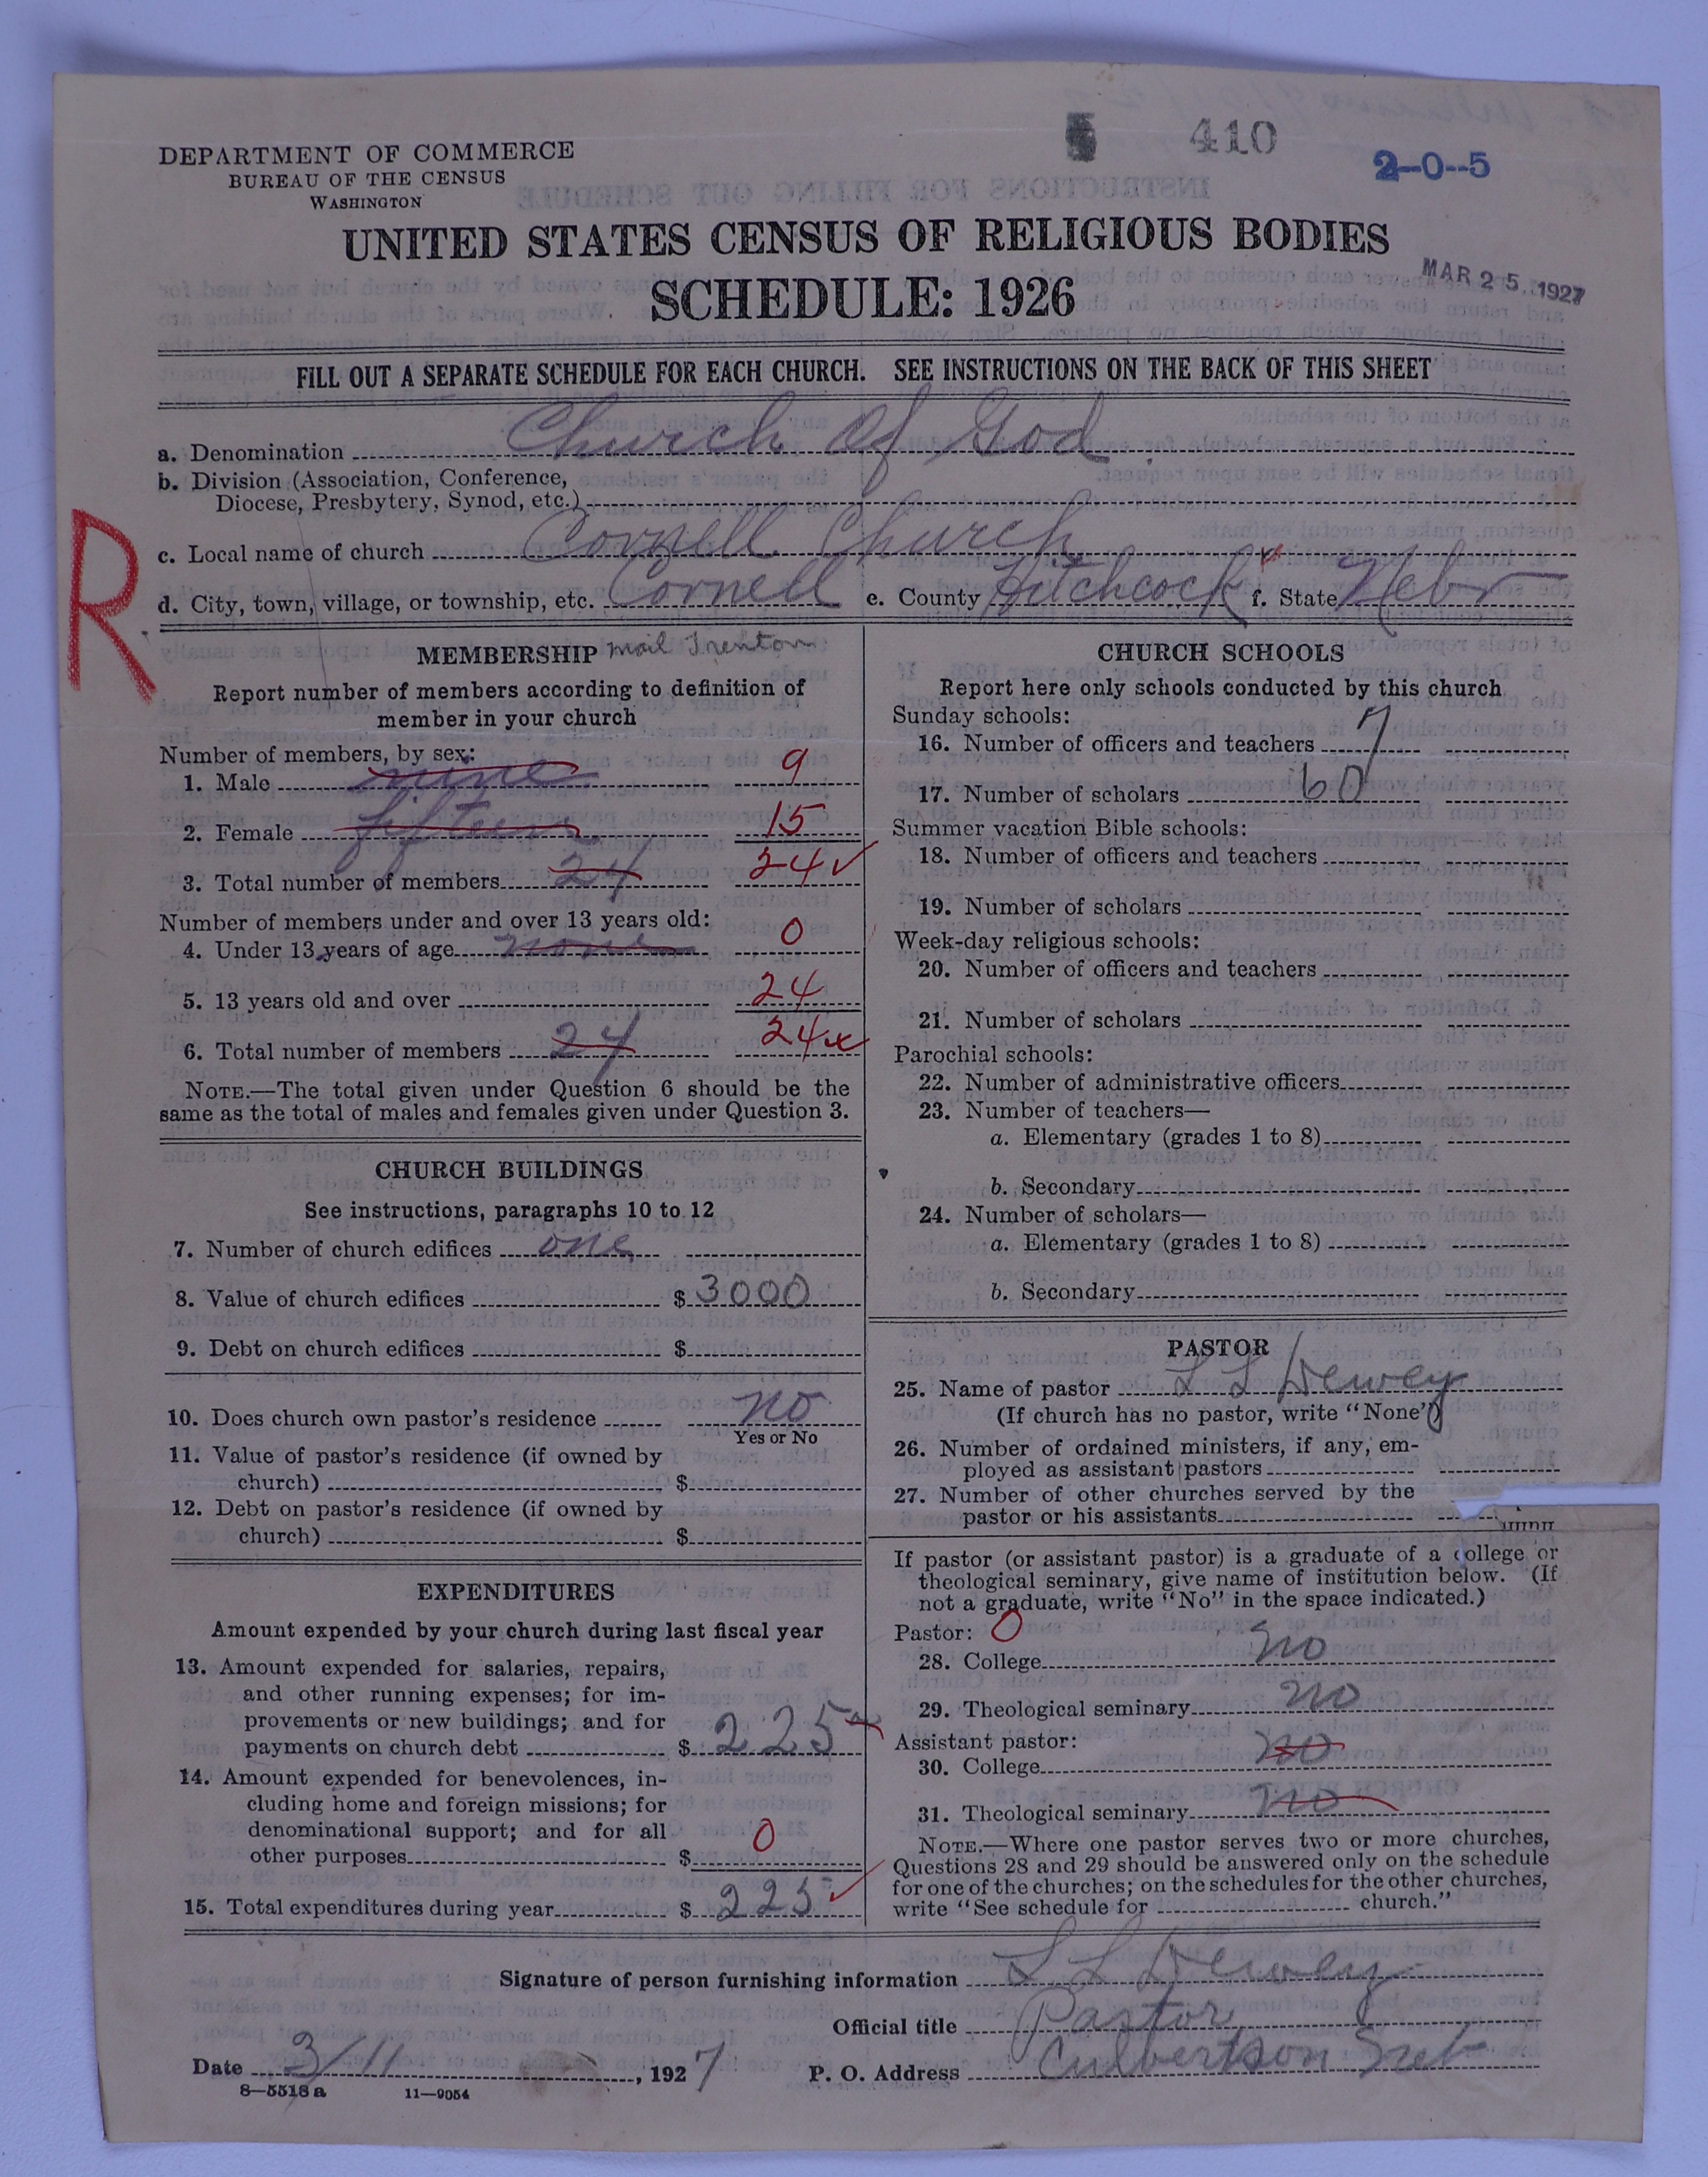 410
2-0-5
DEPARTMENT OF COMMERCE
BUREAU OF THE CENSUS
WASHINGTON
UNITED STATES CENSUS OF RELIGIOUS BODIES
SCHEDULE: 1926
MAR 25 1927
FILL OUT A SEPARATE SCHEDULE FOR EACH CHURCH. SEE INSTRUCTIONS ON THE BACK OF THIS SHEET
a. Denomination Church of God
b. Division (Association, Conference,
Diocese, Presbytery, Synod, etc.)
R
c. Local name of church Cornell Church
d. City, town, village, or township, etc. Cornell e. County Hitchcock f. State Nebr
MEMBERSHIP mail Trenton
Report number of members according to definition of
member in your church
Number of members, by sex:
1. Male nine 9
2. Female fifteen 15
3. Total number of members 24 24 ✓
Number of members under and over 13 years old:
4. Under 13 years of age none 0
5. 13 years old and over 24
6. Total number of members 24 24
NOTE.—The total given under Question 6 should be the
same as the total of males and females given under Question 3.
CHURCH BUILDINGS
See instructions, paragraphs 10 to 12
7. Number of church edifices one
8. Value of church edifices $ 3000
9. Debt on church edifices $
10. Does church own pastor's residence no
Yes or No
11. Value of pastor's residence (if owned by
church) $
12. Debt on pastor's residence (if owned by
church) $
EXPENDITURES
Amount expended by your church during last fiscal year
13. Amount expended for salaries, repairs,
and other running expenses; for im-
provements or new buildings; and for
payments on church debt $ 225
14. Amount expended for benevolences, in-
cluding home and foreign missions; for
denominational support; and for all
other purposes $ 0
15. Total expenditures during year $ 225 ✓
CHURCH SCHOOLS
Report here only schools conducted by this church
Sunday schools:
16. Number of officers and teachers 7
17. Number of scholars 60
Summer vacation Bible schools:
18. Number of officers and teachers
19. Number of scholars
Week-day religious schools:
20. Number of officers and teachers
21. Number of scholars
Parochial schools:
22. Number of administrative officers
23. Number of teachers—
a. Elementary (grades 1 to 8)
b. Secondary
24. Number of scholars—
a. Elementary (grades 1 to 8)
b. Secondary
PASTOR
25. Name of pastor L L Dewey
(If church has no pastor, write "None")
26. Number of ordained ministers, if any, em-
ployed as assistant pastors
27. Number of other churches served by the
pastor or his assistants
If pastor (or assistant pastor) is a graduate of a college or
theological seminary, give name of institution below. (If
not a graduate, write "No" in the space indicated.)
Pastor: 0
28. College no
29. Theological seminary no
Assistant pastor:
30. College no
31. Theological seminary no
NOTE.—Where one pastor serves two or more churches,
Questions 28 and 29 should be answered only on the schedule
for one of the churches; on the schedules for the other churches,
write "See schedule for church."
Signature of person furnishing information L L Dewey
Official title Pastor
Date 3/11, 1927 P. O. Address Culbertson Neb
8—5518 a 11—9054